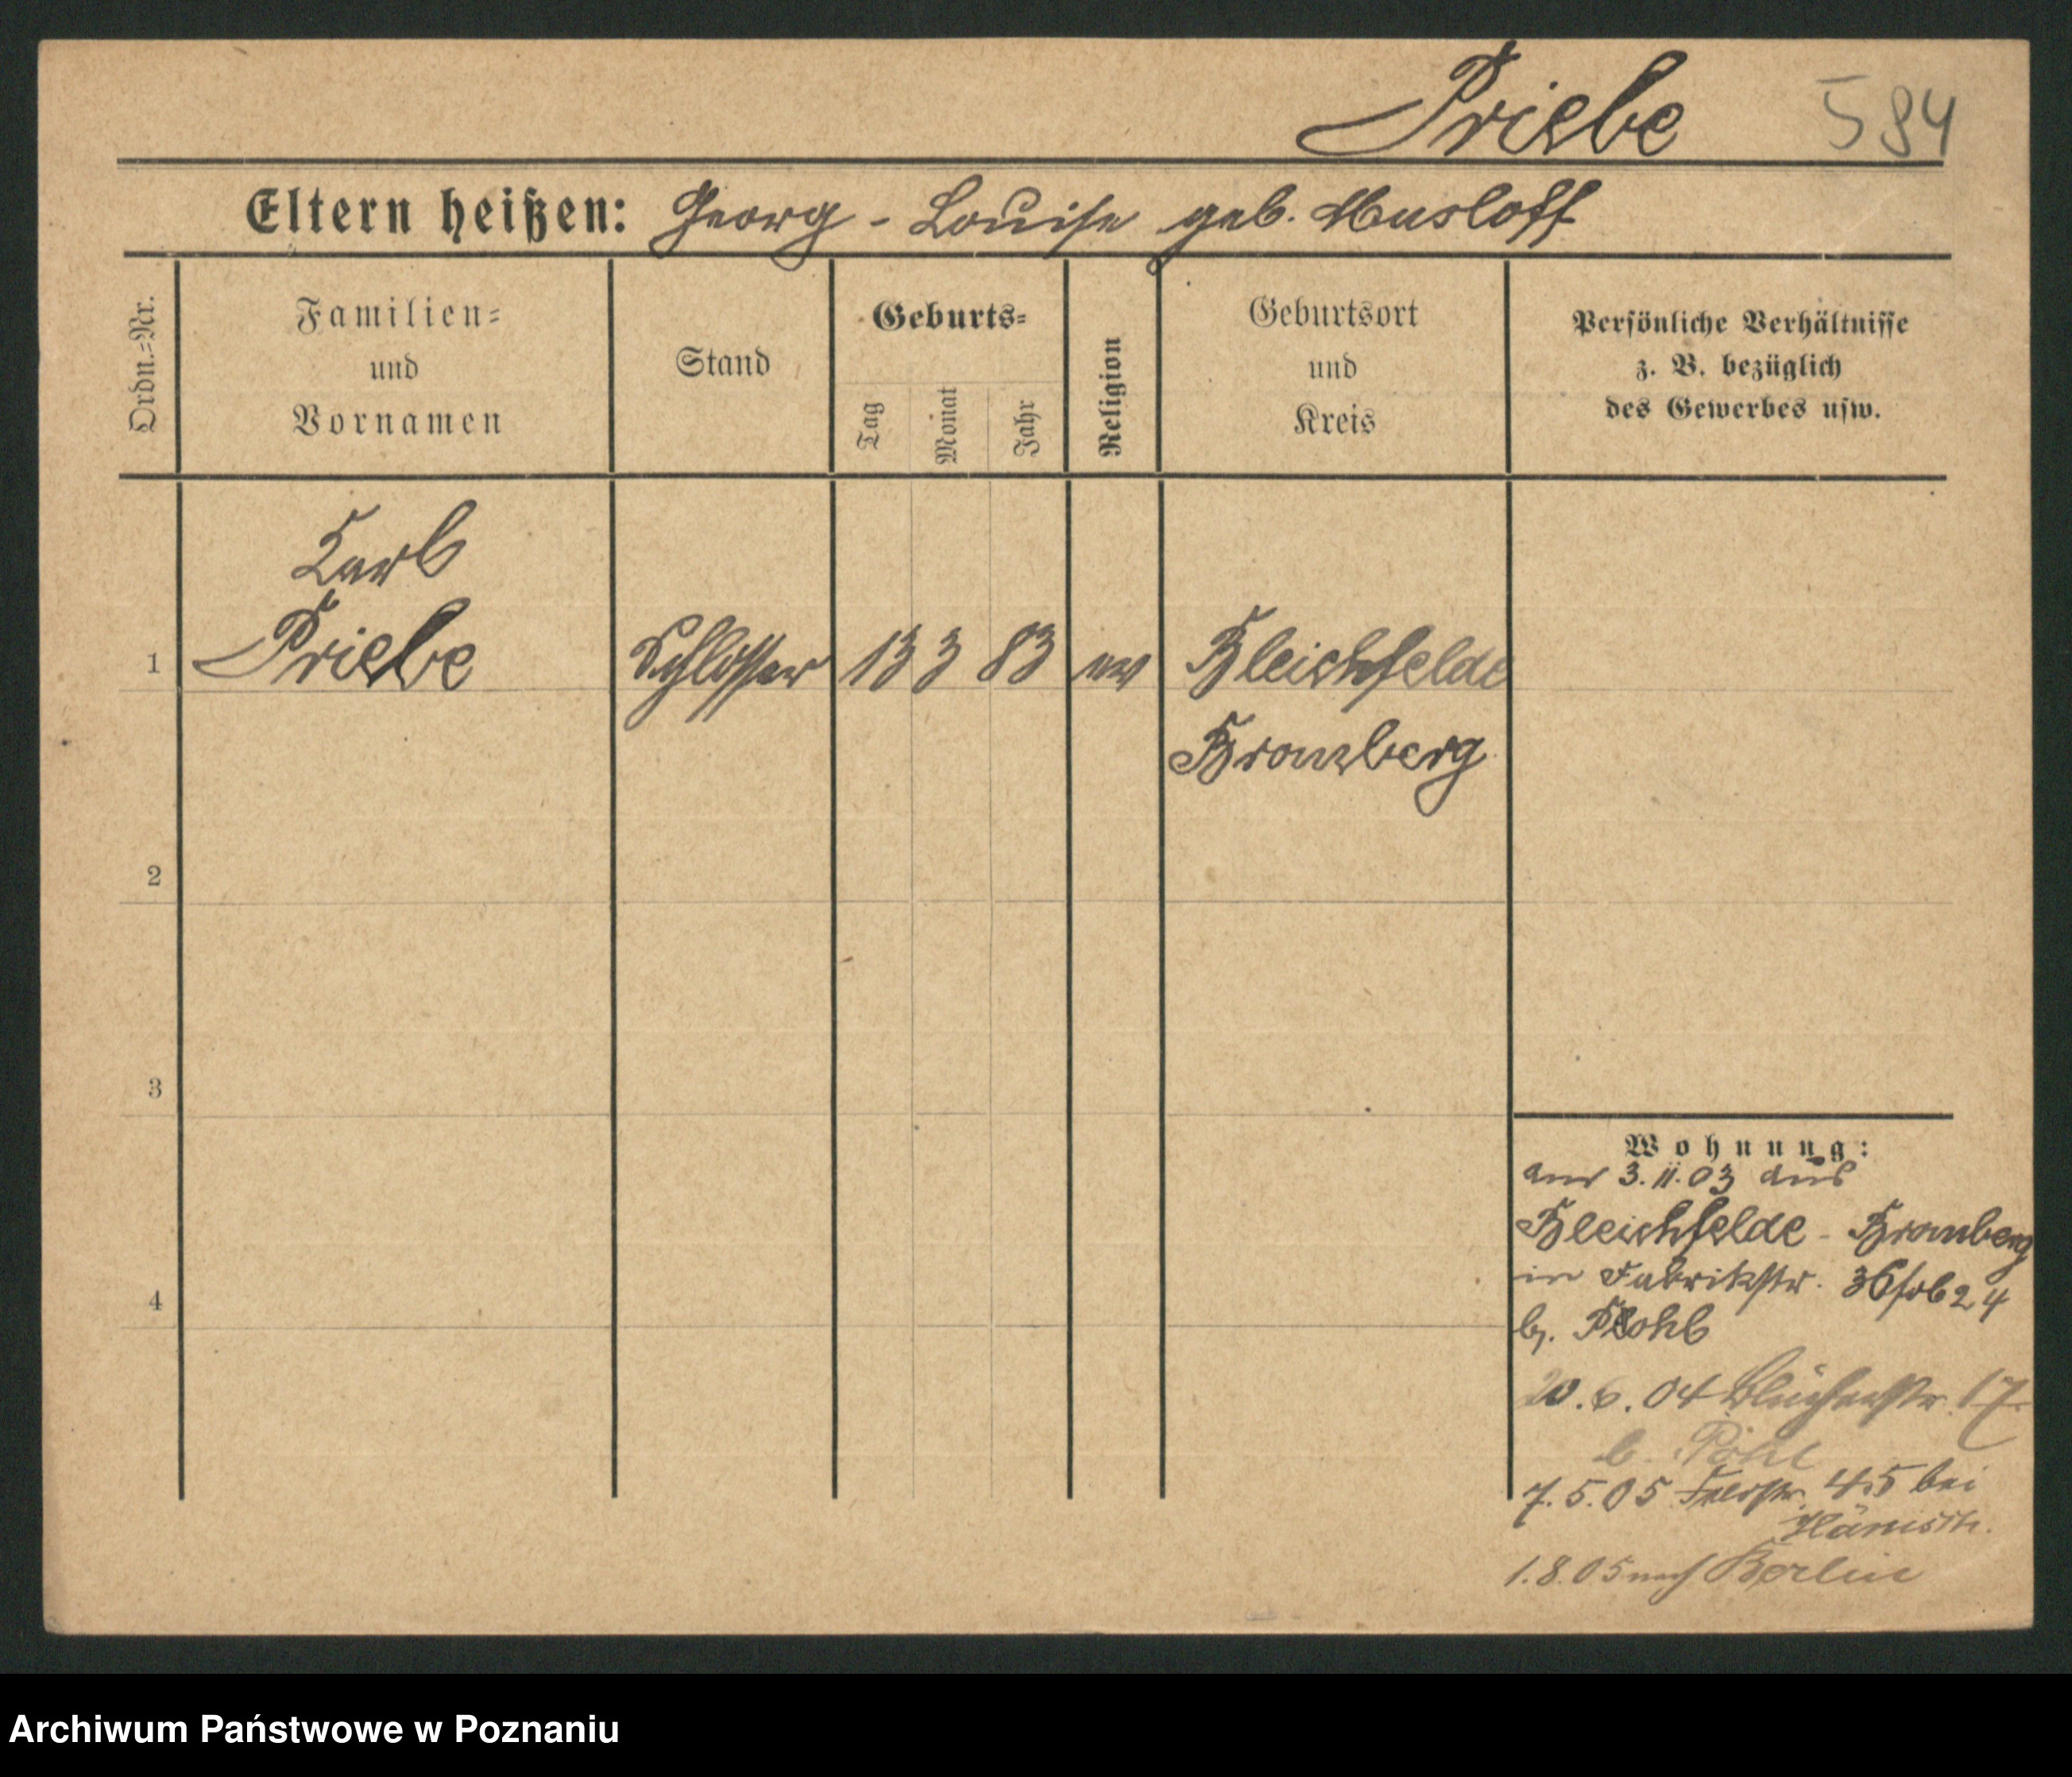 Priebe 594
Eltern heißen: Georg - Louise geb. Musloff
Ordn.-Nr.
Familien-
und
Vornamen
Stand
Geburts-
Tag
Monat
Jahr
Religion
Geburtsort
und
Kreis
Persönliche Verhältnisse
z. B. bezüglich
des Gewerbes usw.
Carl
1 Priebe Schlosser 13 3 83 ev Bleichfelde
Bromberg
2
3
4
Wohnung:
am 3.11.03 aus
Bleichfelde - Bromberg
in Fabrikstr. 36
b.
20.6.04 Blücherstr. 17
b. Pohl
7.5.05 Feldstr. 45 bei
Hänisch.
1.8.05 nach Berlin
Archiwum Państwowe w Poznaniu